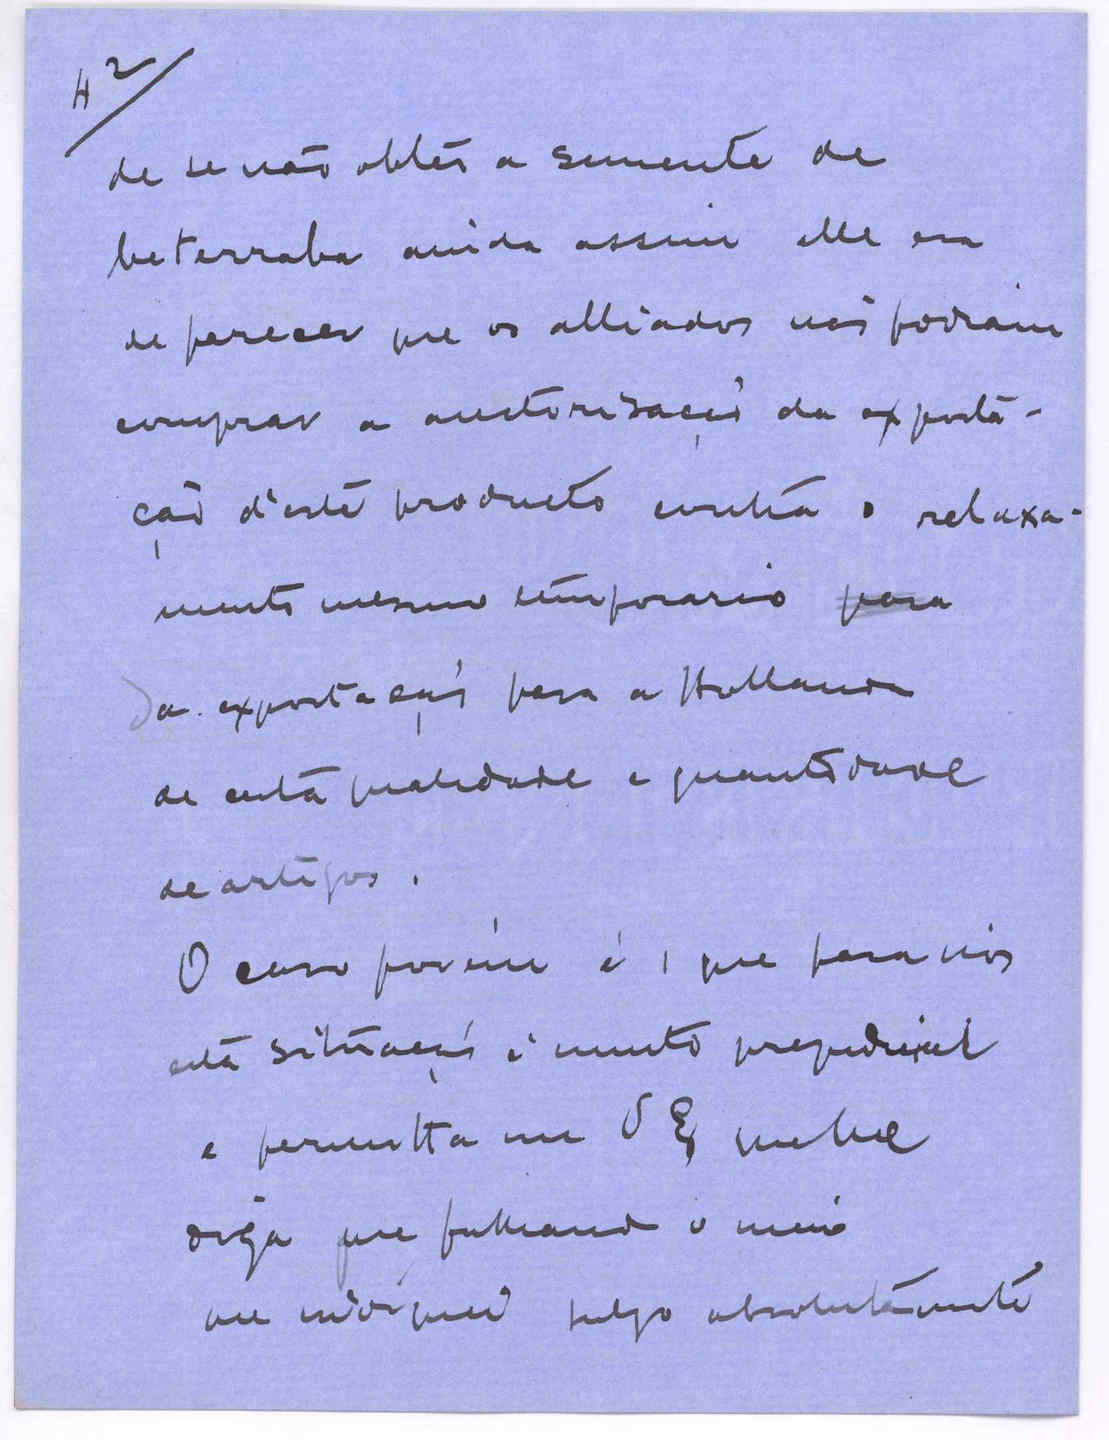 42
de se não obter a semente de
beterraba ainda assim elle era
de parecer que os alliados não podiam
comprar a auctorisação da exporta-
ção d'este producto contra o relaxa-
mento mesmo temporario para
da exportação para a Hollanda
de certa qualidade e quantidade
de artigos.
O caso porém é, que para nós
esta situação é muito prejudicial
e permitta me V Ex que lhe
diga que falhando o meio
que indiquei julgo absolutamente